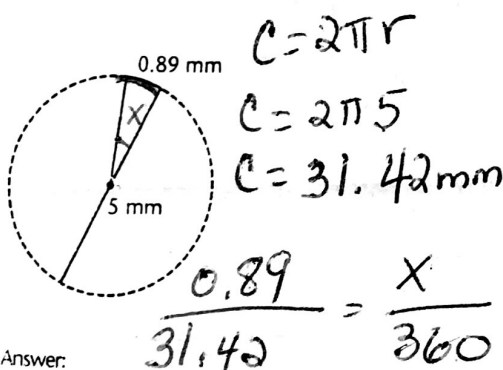 0.89 mm
C = 2πr
X
C = 2π5
C = 31.42mm
5 mm
0.89 / 31.42 = X / 360
Answer: